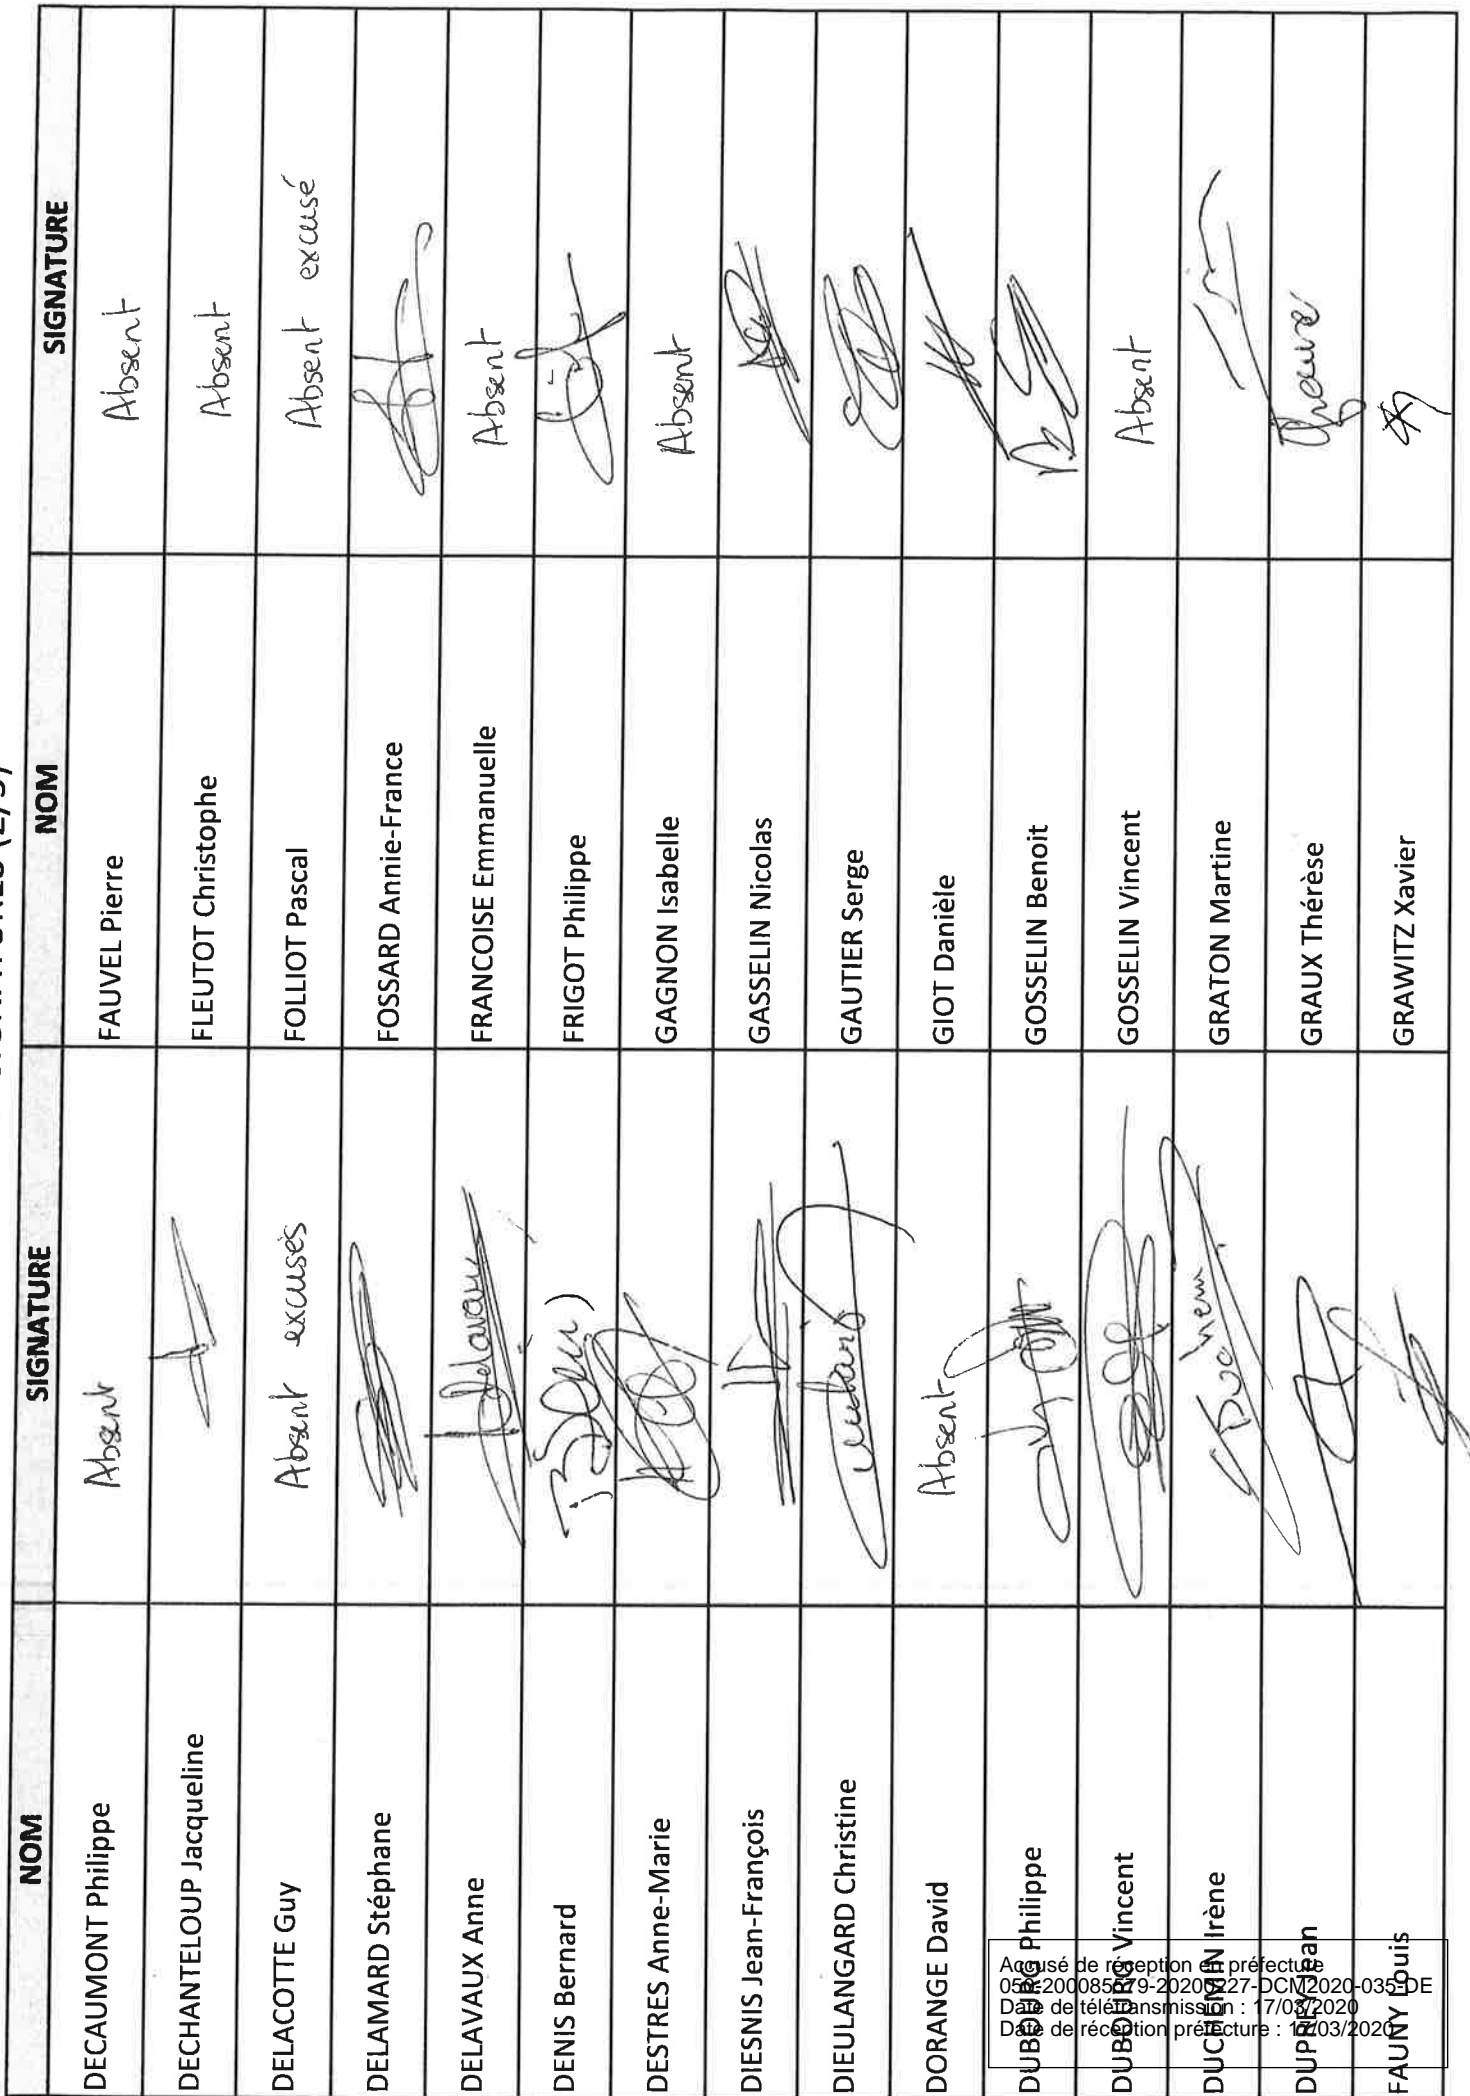 NOM SIGNATURE NOM SIGNATURE
DECAUMONT Philippe Absent FAUVEL Pierre Absent
DECHANTELOUP Jacqueline FLEUTOT Christophe Absent
DELACOTTE Guy Absent excusés FOLLIOT Pascal Absent excusé
DELAMARD Stéphane FOSSARD Annie-France
DELAVAUX Anne Delavaux FRANCOISE Emmanuelle Absent
DENIS Bernard FRIGOT Philippe
DESTRES Anne-Marie GAGNON Isabelle Absent
DIESNIS Jean-François GASSELIN Nicolas
DIEULANGARD Christine GAUTIER Serge
DORANGE David Absent GIOT Danièle
DUBOURG Philippe GOSSELIN Benoit
DUBOURG Vincent GOSSELIN Vincent Absent
DUCHEMIN Irène GRATON Martine
DUPREY Jean GRAUX Thérèse
FAUNY Louis GRAWITZ Xavier
Accusé de réception en préfecture
Date de télétransmission : 17/03/2020
Date de réception préfecture : 17/03/2020